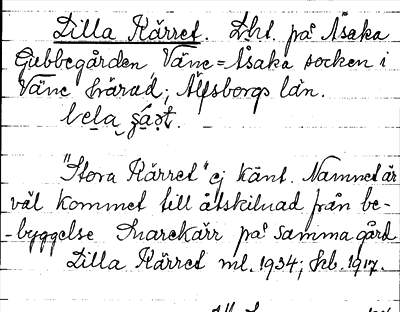 Lilla Kärret. Lht. på Åsaka
Gubbegården Väne=Åsaka socken i
Väne härad; Älfsborgs län.
"Stora Kärret" ej känt. Namnet är
väl kommet till åtskilnad från be-
-byggelse Snarekärr på samma gård
Lilla Kärret ml. 1934; Lek. 1917.